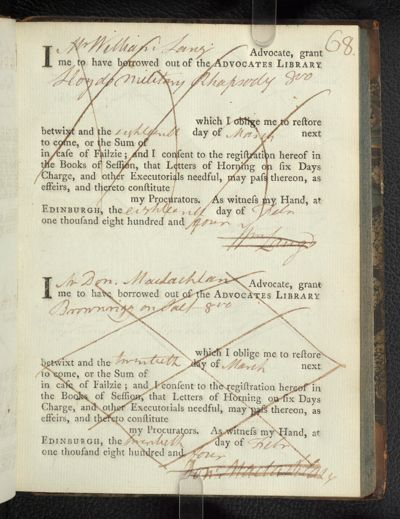 68.
I Mr William Laing Advocate, grant
me to have borrowed out of the ADVOCATES LIBRARY
Lloyds Military Rhapsody 8vo
which I oblige me to reſtore
betwixt and the eighteenth day of March next
to come, or the Sum of
in caſe of Failzie; and I conſent to the regiſtration hereof in
the Books of Seſſion, that Letters of Horning on ſix Days
Charge, and other Executorials needful, may paſs thereon, as
effeirs, and thereto conſtitute
my Procurators. As witneſs my Hand, at
EDINBURGH, the eighteenth day of Febr
one thouſand eight hundred and four
Wm Laing
I Mr Don. Maclachlan Advocate, grant
me to have borrowed out of the ADVOCATES LIBRARY
Brownrigg on Salt 8vo
which I oblige me to reſtore
betwixt and the twentieth day of March next
to come, or the Sum of
in caſe of Failzie; and I conſent to the regiſtration hereof in
the Books of Seſſion, that Letters of Horning on ſix Days
Charge, and other Executorials needful, may paſs thereon, as
effeirs, and thereto conſtitute
my Procurators. As witneſs my Hand, at
EDINBURGH, the twentieth day of Febr
one thouſand eight hundred and four
Don. Maclachlan